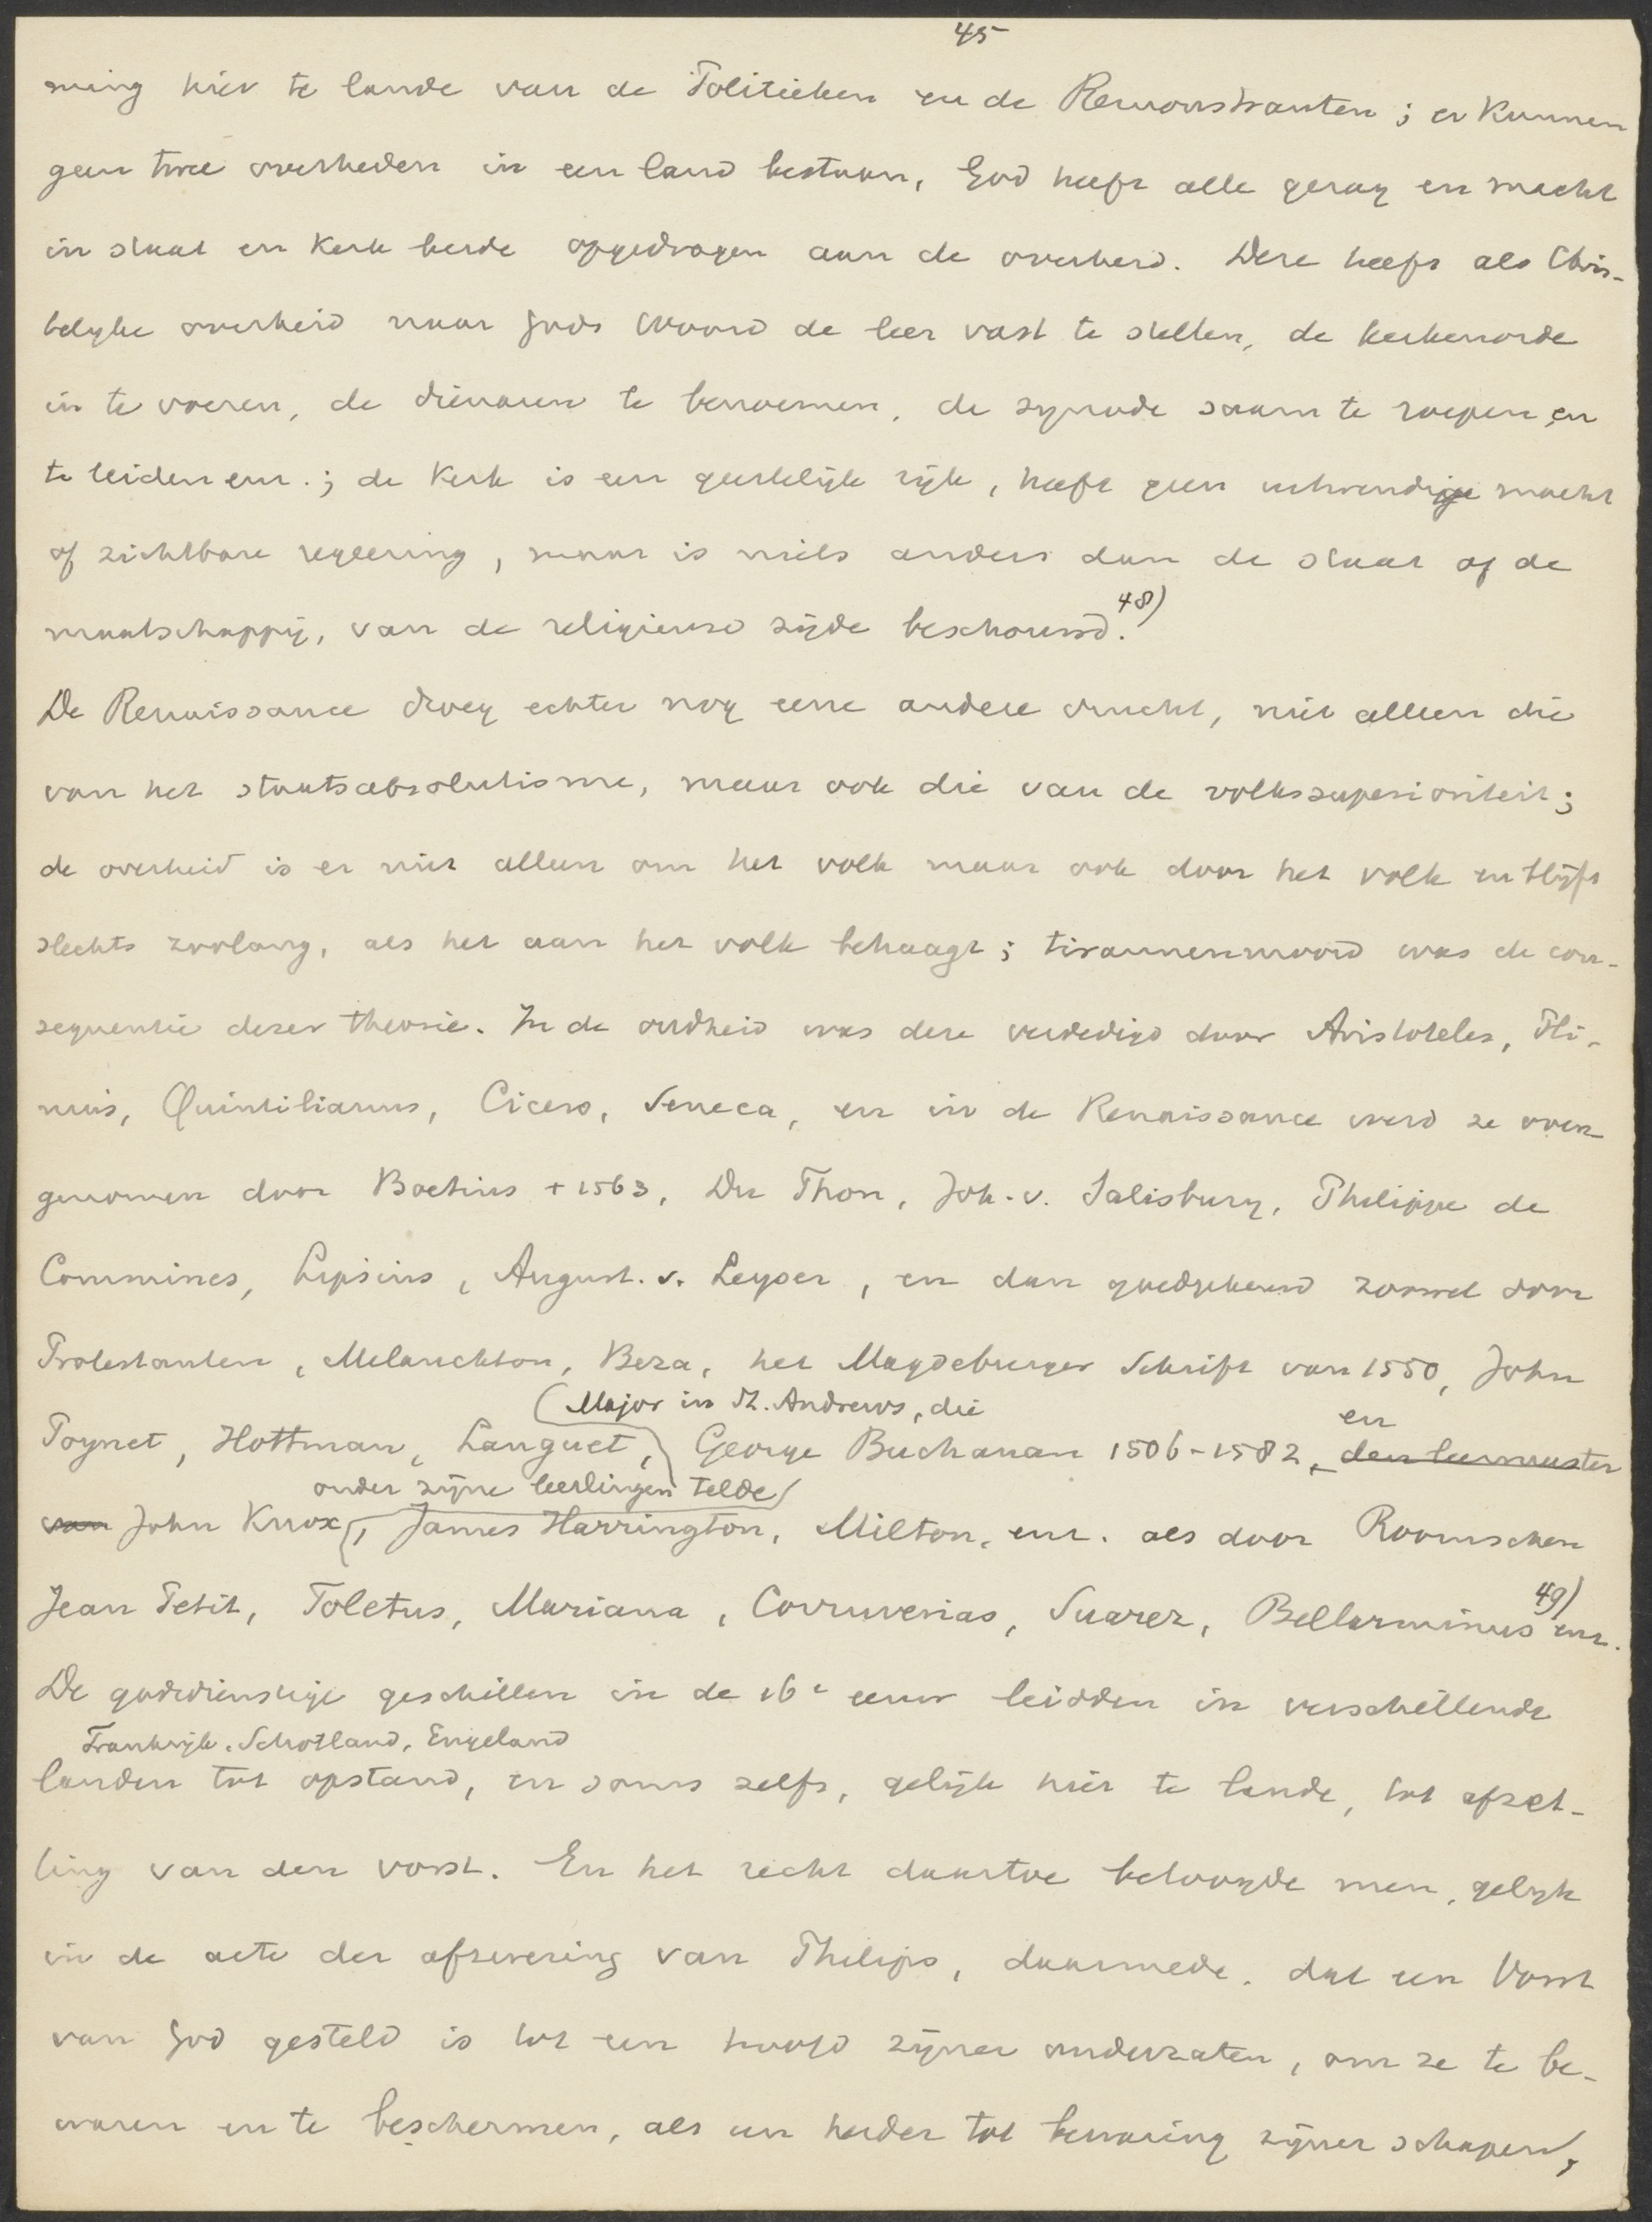 45
ming hier te lande van de Politieken en de Remonstranten; er kunnen
geen twee overheden in een land bestaan, God heeft alle gezag en macht
in staat en kerk beide opgedragen aan de overheid. Deze heeft als Chris-
telijke overheid naar Gods Woord de leer vast te stellen, de kerkenorde
in te voeren, de dienaren te benoemen, de synode saam te roepen en
te leiden enz.; de kerk is een geestelijk rijk, heeft geen uitwendige macht
of zichtbare regeering, maar is niets anders dan de staat of de
maatschappij, van de religieuse zijde beschouwd. 48)
De Renaissance droeg echter nog eene andere vrucht, niet alleen die
van het staatsabsolutisme, maar ook die van de volkssuperioriteit;
de overheid is er niet alleen om het volk maar ook door het volk en blijft
slechts zoolang, als het aan het volk behaagt; tirannenmoord was de con-
sequentie dezer theorie. In de oudheid was deze verdedigd door Aristoteles, Pli-
nius, Quintilianus, Cicero, Seneca, en in de Renaissance werd ze over-
genomen door Boetius + 1563, Du Thon, Joh. v. Salisbury, Philippe de
Commines, Lipsius, August. v. Leyser, en dan goedgekeurd zoowel door
Protestanten, Melanchton, Beza, het Magdeburger Schrift van 1550, John
(Major in St. Andrews, die
Poynet, Hottman, Languet, George Buchanan 1506-1582, en den leermeester
onder zijne leerlingen telde)
van John Knox, James Harrington, Milton, enz. als door Roomschen
Jean Petit, Toletus, Mariana, Covruvenias, Suarez, Bellarminus enz. 49)
De godsdienstige geschillen in de 16e eeuw leidden in verschillende
Frankrijk, Schotland, Engeland
landen tot opstand, en soms zelfs, gelijk hier te lande, tot afzet-
ting van den vorst. En het recht daartoe betoogde men, gelijk
in de acte der afzwering van Philips, daarmede, dat een Vorst
van God gesteld is tot een hoofd zijner onderzaten, om ze te be-
waren en te beschermen, als een herder tot bewaring zijner schapen,